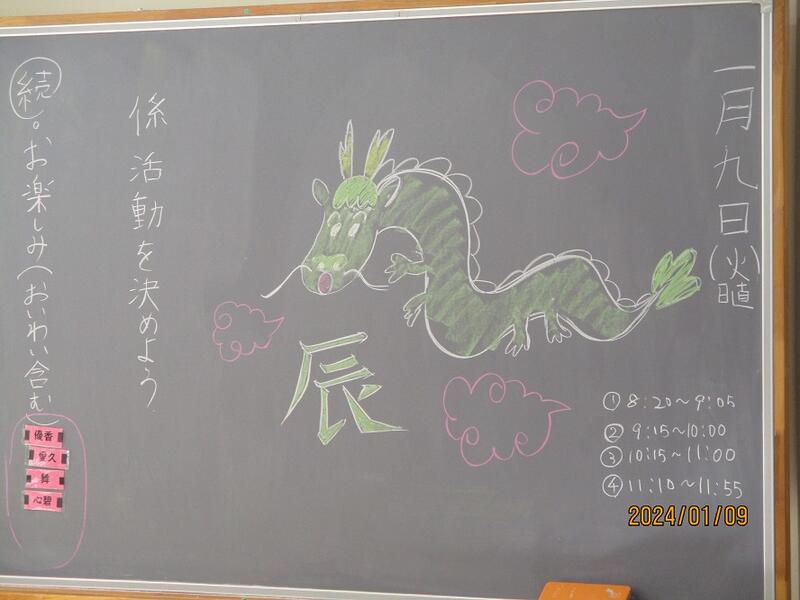 一月九日(火曜)
①8:20～9:05
②9:15～10:00
③10:15～11:00
④11:10～11:55
辰
係活動を決めよう
続。お楽しみ(おいわい含む)
優香
愛久
舞
心碧
2024/01/09